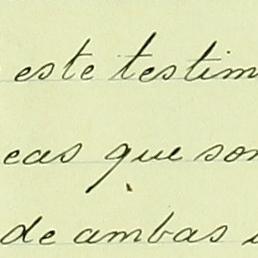 este testim
eas que son
de ambas